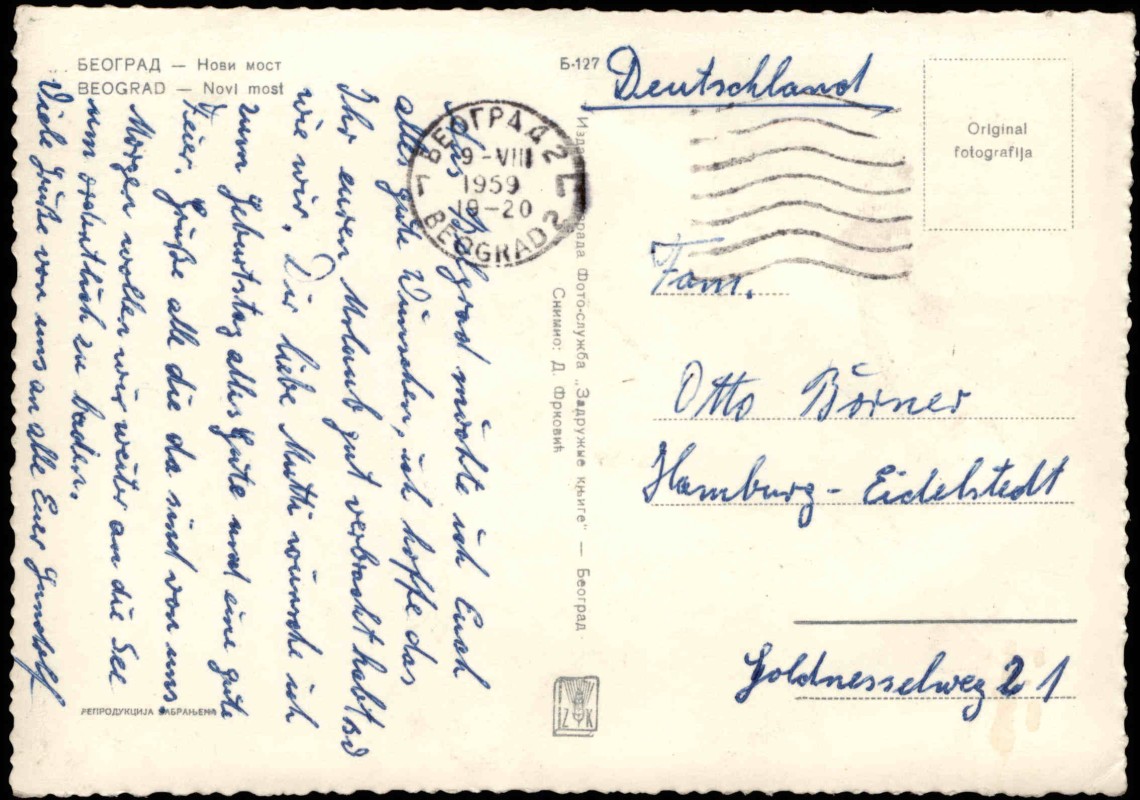 БЕОГРАД — Нови мост
BEOGRAD — Novi most
Aus Belgrad möchte ich Euch
alles gute Wünschen, ich hoffe das
Ihr euren Urlaub gut verbracht habt so
wie wir. Dir liebe Mutti wünsche ich
zum Geburtstag alles gute und eine gute
Feier. Grüße alle die da sind von uns
Morgen wollen wir weiter an die See
um ordentlich zu baden.
Viele Grüße von uns an alle Euer Gundolf
РЕПРОДУКЦИЈА ЗАБРАЊЕНА
БЕОГРАД 2
9-VIII
1959
19-20
BEOGRAD 2
Б-127
Фото-служба „Задружне књиге" — Београд
Снимио: Д. Фрковић
Z K
Deutschland
Original
fotografija
Fam.
Otto Börner
Hamburg - Eidelstedt
Goldnesselweg 21